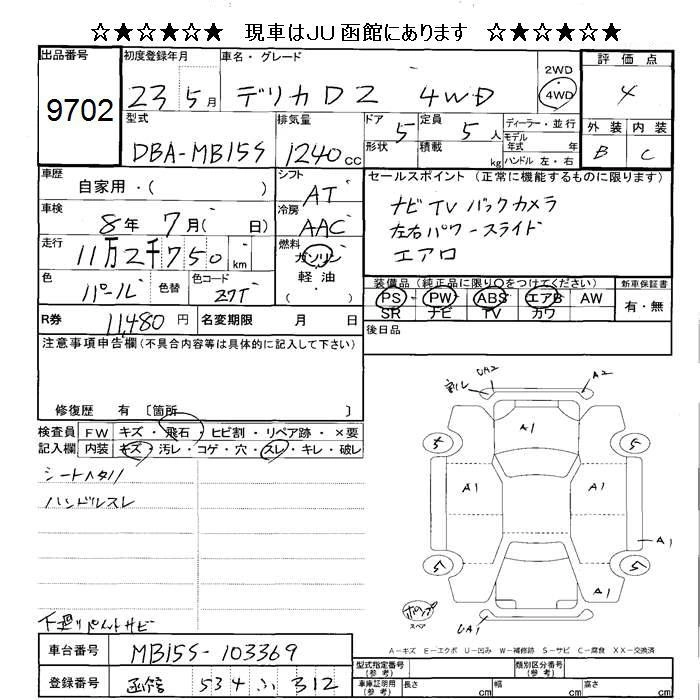 ☆★☆★☆★ 現車はJU函館にあります ☆★☆★☆★
出品番号 9702
初度登録年月 23 5月
車名・グレード デリカD2 4WD
2WD 4WD
評価点 4
型式 DBA-MB15S
排気量 1240cc
ドア 5 形状
定員 5人 積載 kg
ディーラー・並行
モデル年式 年
ハンドル 左・右
外装 B 内装 C
車歴 自家用・( )
シフト AT
セールスポイント (正常に機能するものに限ります)
車検 8年 7月( 日)
冷房 AAC
ナビ TV バックカメラ
左右パワースライド
エアロ
走行 11万2千750 km
燃料 ガソリン 軽油
色 パール 色替
色コード ZTT
装備品(純正品に限り〇をつけてください)
PS・PW・ABS・エアB・AW
SR ナビ TV カワ
新車保証書 有・無
R券 11,480円
名変期限 月 日
後日品
注意事項申告欄(不具合内容等は具体的に記入して下さい)
修復歴 有 〔箇所 〕
検査員記入欄
FW キズ・飛石・ヒビ割・リペア跡・×要
内装 キズ・汚レ・コゲ・穴・スレ・キレ・破レ
シートヘタリ
ハンドルスレ
下廻りペイントサビ
割レ UA2 A2
A1
5 5
A1 A1
A1
5 5
A1
UA1
スペア
A-キズ E-エクボ U-凹み W-補修跡 S-サビ C-腐食 XX-交換済
車台番号 MB15S-103369
登録番号 函館 534 ふ 312
型式指定番号(参考)
類別区分番号(参考)
車庫証明用(参考) 長さ cm 幅 cm 高さ cm